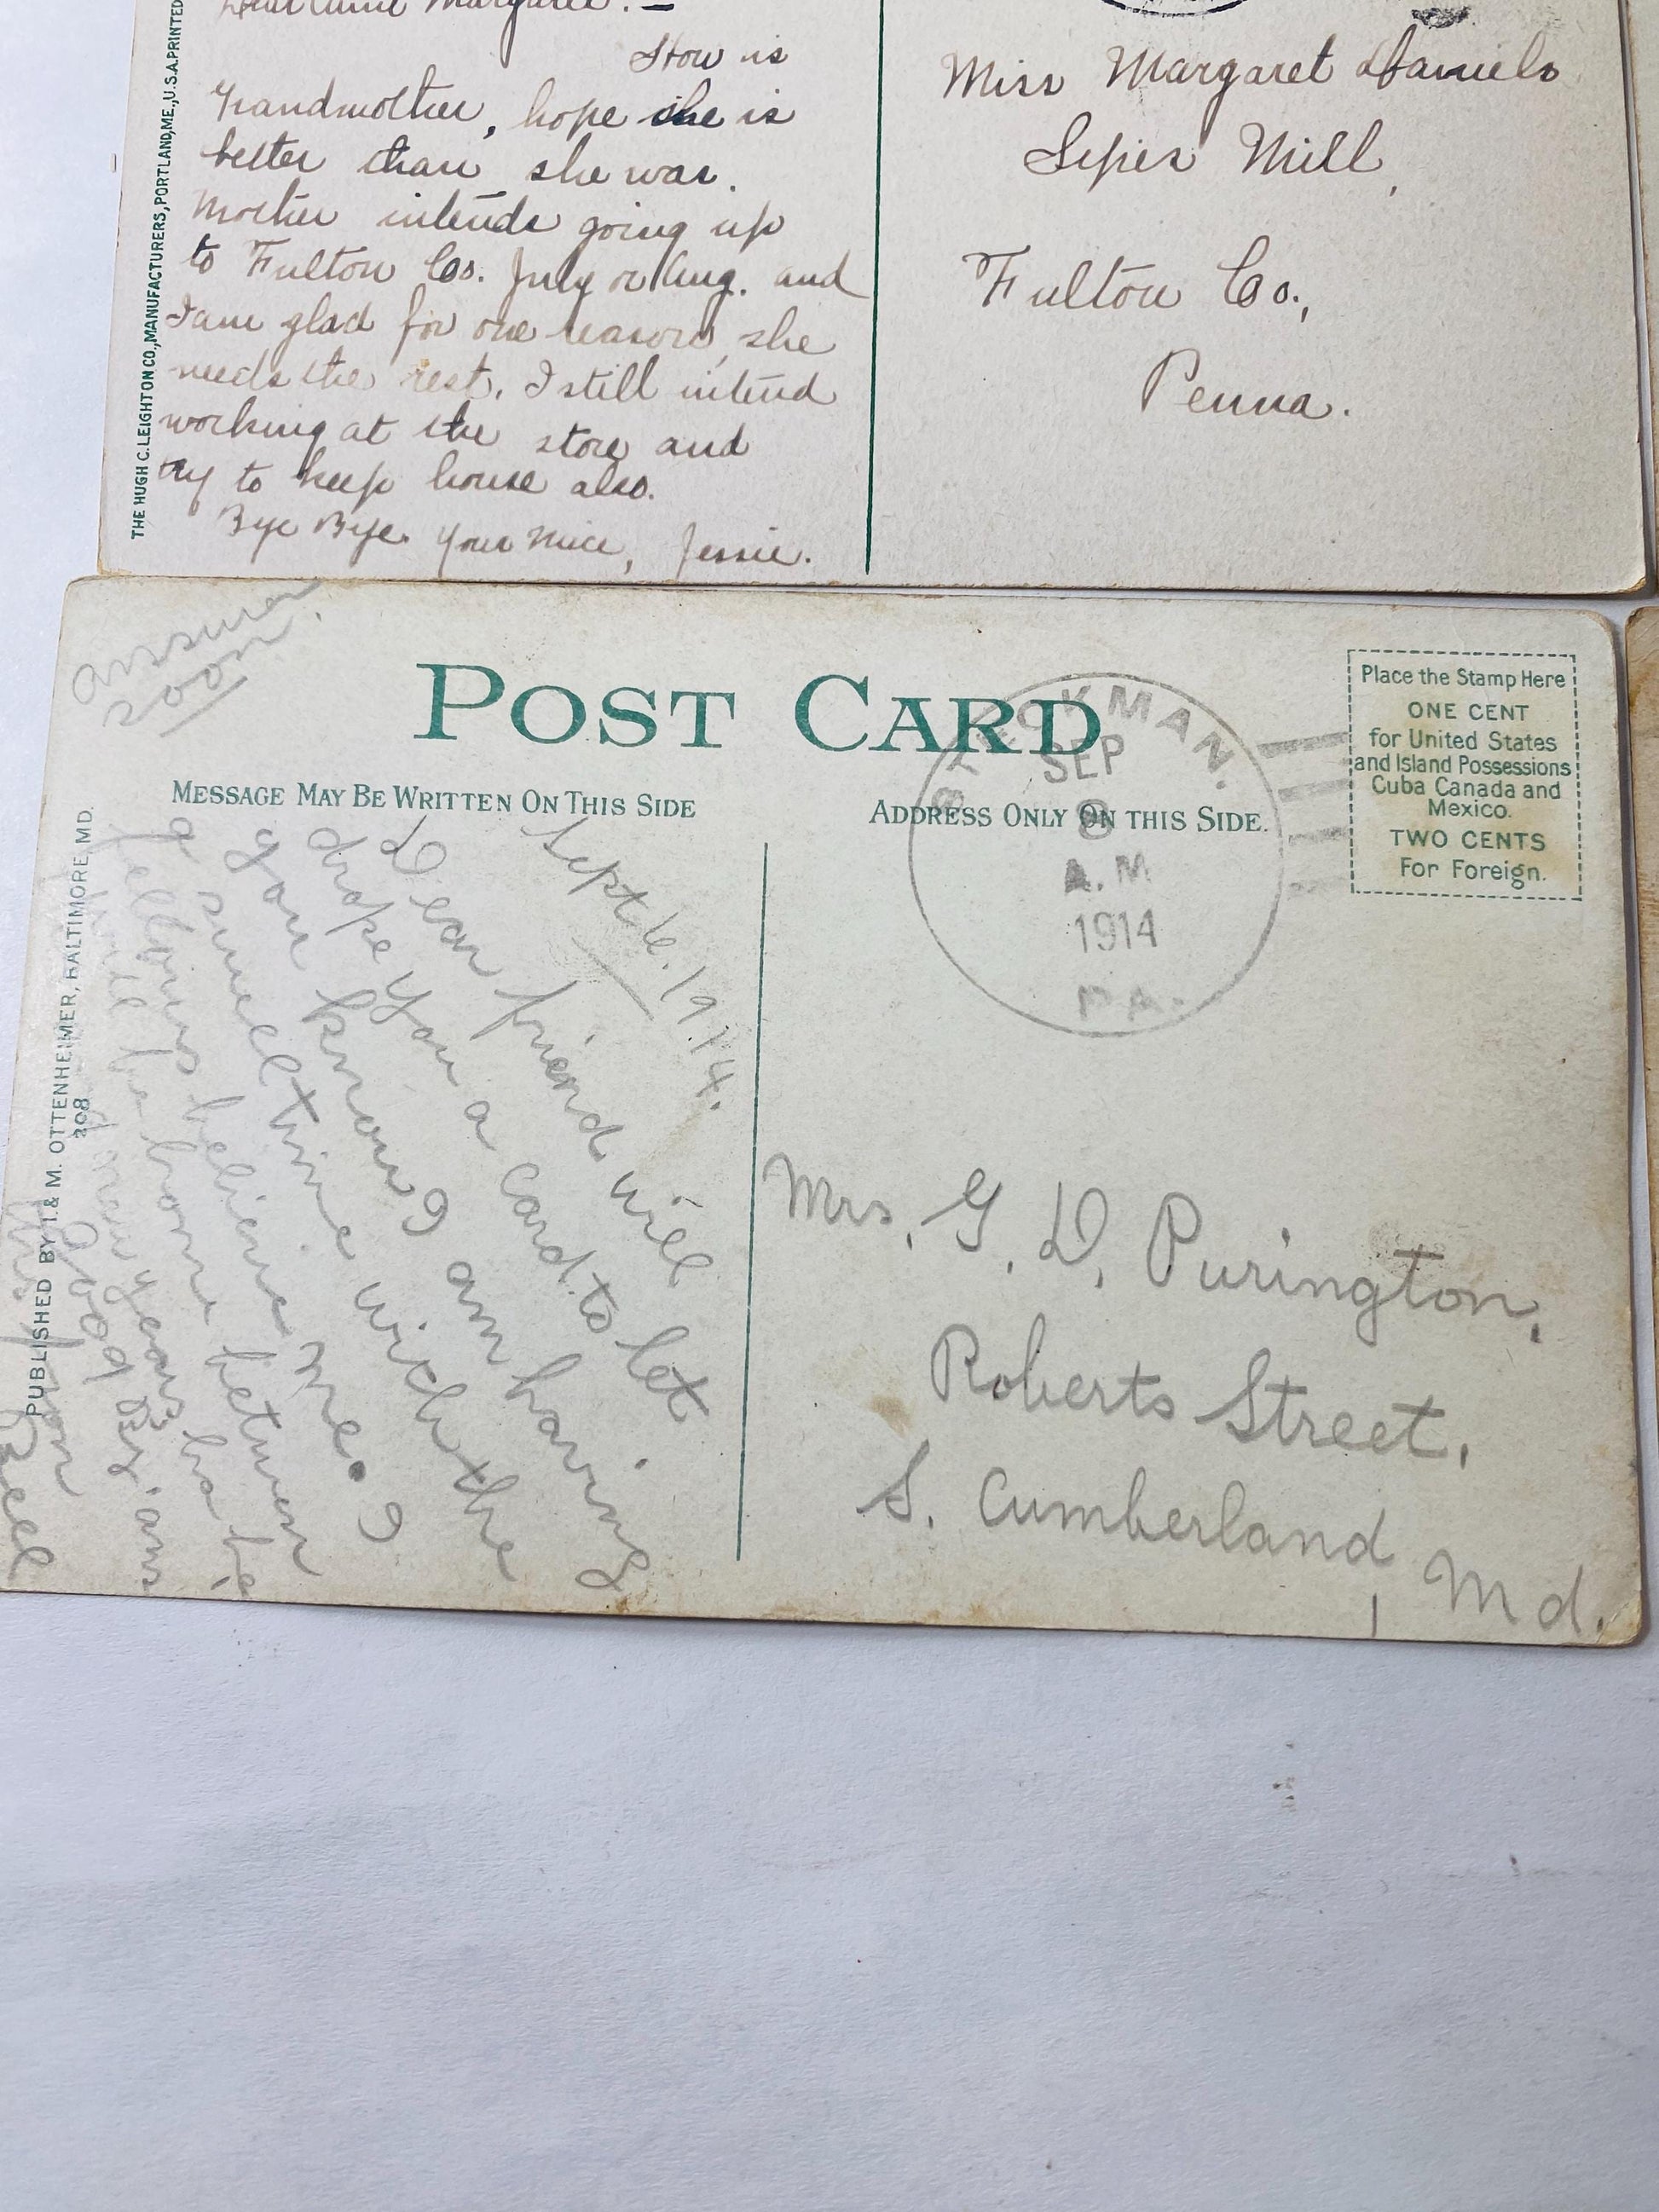 THE HUGH C. LEIGHTON CO., MANUFACTURERS, PORTLAND, ME., U.S.A. PRINTED
Margaret. —
How is
Grandmother, hope she is
better than she was.
Mother intends going up
to Fulton Co. July or Aug. and
I am glad for one reason, she
needs the rest. I still intend
working at the store and
try to keep house also.
Bye Bye. Your Niece, Jessie.
Miss Margaret Daniels
Sipes Mill,
Fulton Co.,
Penna.
answer
soon.
POST CARD
MESSAGE MAY BE WRITTEN ON THIS SIDE
ADDRESS ONLY ON THIS SIDE.
Place the Stamp Here
ONE CENT
for United States
and Island Possessions
Cuba Canada and
Mexico.
TWO CENTS
For Foreign.
SEP
8
A.M
1914
PA.
PUBLISHED BY I. & M. OTTENHEIMER, BALTIMORE, MD.
208
Sept 6. 1914.
Dear friend will
drope you a card to let
you know I am having
a swell time with the
fellows believe me. I
will be home between
years
Good By.
Mrs. G. D. Purington,
Roberts Street,
S. Cumberland, Md.